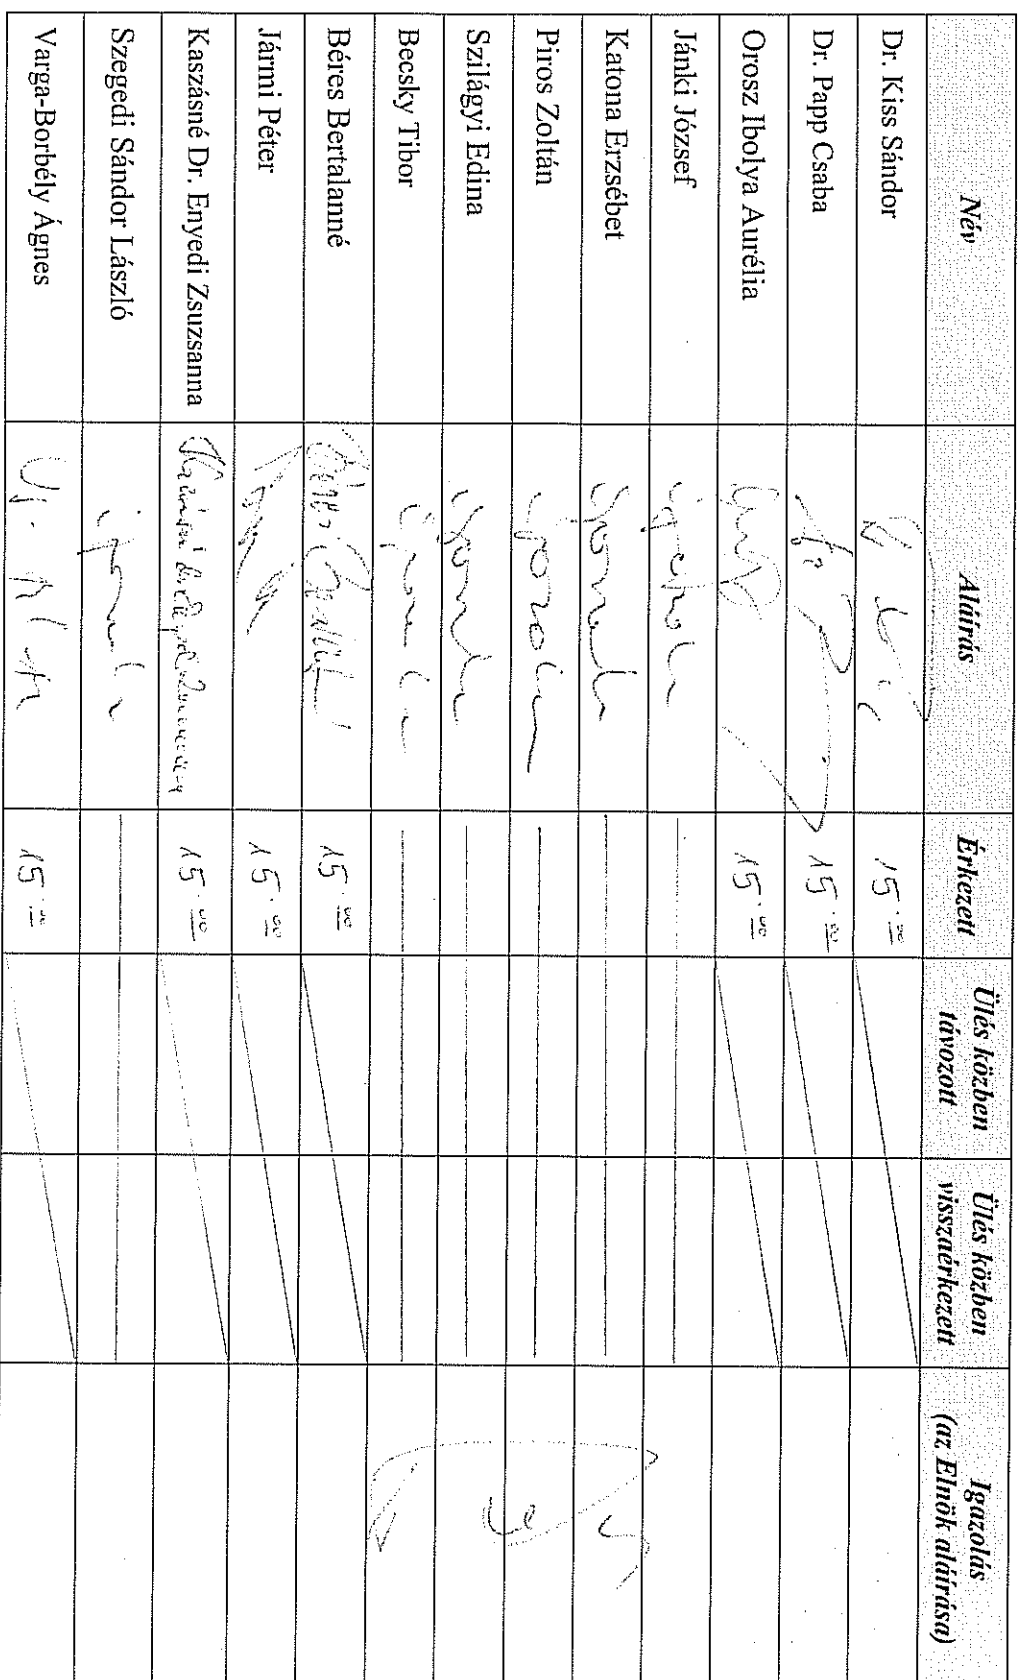 Név Aláírás Érkezett Ülés közben távozott Ülés közben visszaérkezett Igazolás (az Elnök aláírása)
Dr. Kiss Sándor 15.00
Dr. Papp Csaba 15.00
Orosz Ibolya Aurélia 15.00
Jánki József
Katona Erzsébet
Piros Zoltán
Szilágyi Edina
Becsky Tibor
Béres Bertalanné 15.00
Jármi Péter 15.00
Kaszásné Dr. Enyedi Zsuzsanna 15.00
Szegedi Sándor László
Varga-Borbély Ágnes 15.00